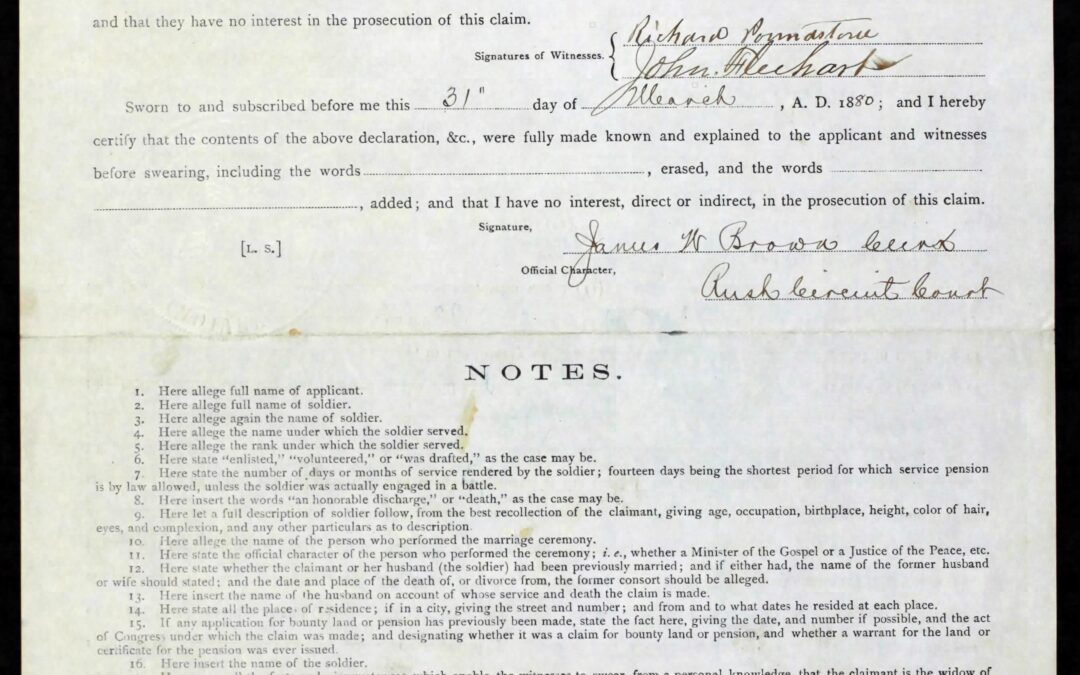 and that they have no interest in the prosecution of this claim.
Richard Poundstone
Signatures of Witnesses.
John. Fleehart
Sworn to and subscribed before me this 31" day of March , A. D. 1880; and I hereby
certify that the contents of the above declaration, &c., were fully made known and explained to the applicant and witnesses
before swearing, including the words , erased, and the words
, added; and that I have no interest, direct or indirect, in the prosecution of this claim.
Signature,
[L. S.]
James W Brown Clerk
Official Character,
Rush Circuit Court
NOTES.
1. Here allege full name of applicant.
2. Here allege full name of soldier.
3. Here allege again the name of soldier.
4. Here allege the name under which the soldier served.
5. Here allege the rank under which the soldier served.
6. Here state "enlisted," "volunteered," or "was drafted," as the case may be.
7. Here state the number of days or months of service rendered by the soldier; fourteen days being the shortest period for which service pension
is by law allowed, unless the soldier was actually engaged in a battle.
8. Here insert the words "an honorable discharge," or "death," as the case may be.
9. Here let a full description of soldier follow, from the best recollection of the claimant, giving age, occupation, birthplace, height, color of hair,
eyes, and complexion, and any other particulars as to description.
10. Here allege the name of the person who performed the marriage ceremony.
11. Here state the official character of the person who performed the ceremony; i. e., whether a Minister of the Gospel or a Justice of the Peace, etc.
12. Here state whether the claimant or her husband (the soldier) had been previously married; and if either had, the name of the former husband
or wife should stated; and the date and place of the death of, or divorce from, the former consort should be alleged.
13. Here insert the name of the husband on account of whose service and death the claim is made.
14. Here state all the places of residence; if in a city, giving the street and number; and from and to what dates he resided at each place.
15. If any application for bounty land or pension has previously been made, state the fact here, giving the date, and number if possible, and the act
of Congress under which the claim was made; and designating whether it was a claim for bounty land or pension, and whether a warrant for the land or
certificate for the pension was ever issued.
16. Here insert the name of the soldier.
which enable the witnesses to swear, from a personal knowledge, that the claimant is the widow of